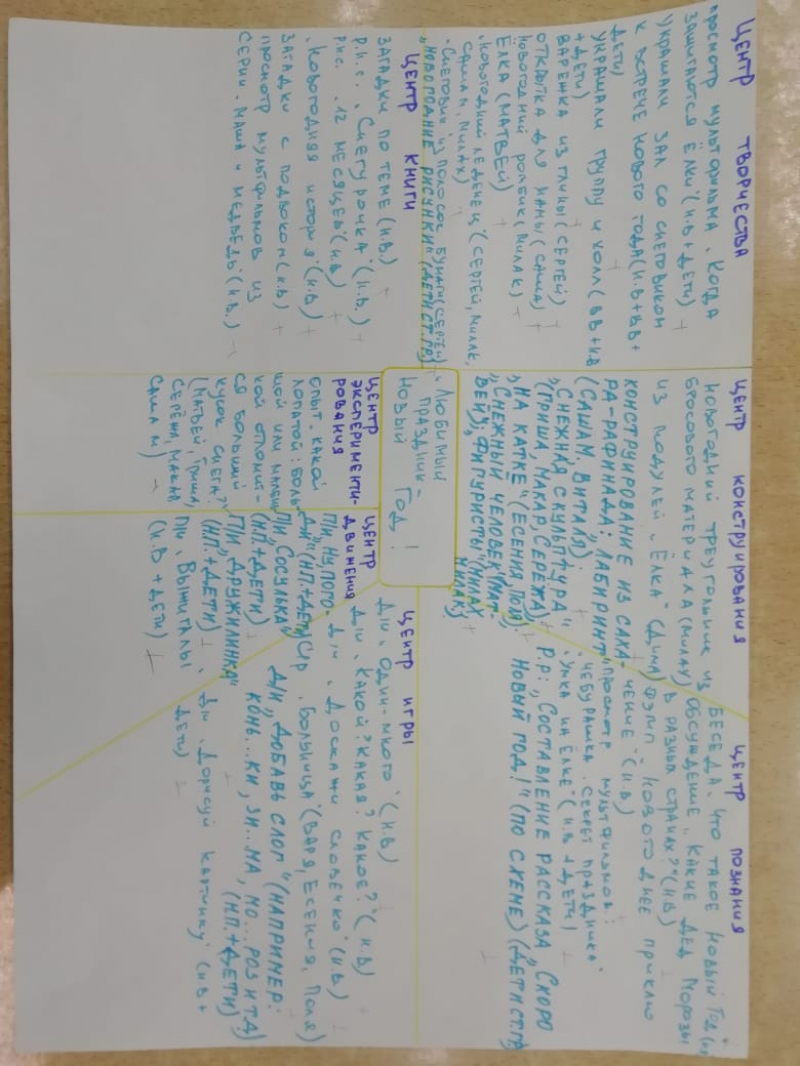 ЦЕНТР ТВОРЧЕСТВА
просмотр мультфильма „Когда
зажигаются ёлки"(н.в+дети) +
украшали зал со снеговиком
к встрече Нового года(н.в+вв+
дети)
украшали группу и холл(вв+нв
+дети)
варежка из глины(Сергей) +
открытка для мамы(Саша) +
Новогодний ролик(Милак) +
Ёлка(Матвей)
„Новогодний леденец"(Сергей, Милак,
Сашам, Милах)
„Снеговик из полосок бумаги(Сергей)
„НОВОГОДНИЕ РИСУНКИ"(ДЕТИ СТ. ГР)
ЦЕНТР КНИГИ
Загадки по теме(н.в.) +
р.н.с. „Снегурочка"(н.в.) +
„Новогодняя история"(н.в.) +
р.н.с. „12 месяцев"(н.в) +
Загадки с подвохом(н.в) +
просмотр мультфильмов из
серии „Маша и Медведь"(н.в.)
ЦЕНТР КОНСТРУИРОВАНИЯ
Новогодний треугольник из
бросового материала(Милах)
из модулей „Ёлка"(Дима)
КОНСТРУИРОВАНИЕ ИЗ САХА-
РА-РАФИНАДА: „ЛАБИРИНТ"
(САШАМ, ВИТАЛЯ);
„СНЕЖНАЯ СКУЛЬПТУРА"
(ГРИША, МАКАР, СЕРЁЖА)
„НА КАТКЕ"(ЕСЕНИЯ, ПОЛЯ)
„СНЕЖНЫЙ ЧЕЛОВЕК"(МАТ-
ВЕЙ); „ФИГУРИСТЫ"(МИЛАХ,
МИЛАК)
ЦЕНТР ПОЗНАНИЯ
Беседа „Что такое Новый Год"
Обсуждение „Какие Дед Морозы
в разных странах?"(нв)
Фэлип Новогоднее приклю
чение"(н.в)
просмотр мультфильмов:
„Чебурашка. Секрет праздника"
„Умка на ёлке"(н.в + дети)
Р.р: „СОСТАВЛЕНИЕ РАССКАЗА „СКОРО
НОВЫЙ ГОД!"(ПО СХЕМЕ)(ДЕТИ СТ.ГР)
Любимый
праздник-
Новый Год!
ЦЕНТР
ЭКСПЕРИМЕНТИ-
РОВАНИЯ
опыт „Какой
лопатой: боль-
шой или малень-
кой отломит-
ся больший
кусок снега?"
(Матвей, Гриша,
Серёжа, Макар,
Сашам)
ЦЕНТР
ДВИЖЕНИЯ
П/И „НУ, ПОГО-
ДИ"(Н.П.+ДЕТИ)
П/И „СОСУЛЬКА"
(Н.П.+ДЕТИ)
П/И „ДРУЖИЛИНКА"
(Н.П.+ДЕТИ)
П/И „Вышибалы
(н.в+дети)
ЦЕНТР ИГРЫ
д/и „Один-много"(н.в)
д/и „Какой? Какая? Какое?"(н.в)
д/и „Доскажи словечко"(н.в.)
С/р „Больница"(Варя, Есения, Поля)
Д/И „ДОБАВЬ СЛОГ"(НАПРИМЕР:
КОНЬ...КИ, ЗИ...МА, МО...РОЗ И ТД)
(Н.П.+ДЕТИ)
д/и „Дорисуй картинку"(н.в+
дети)